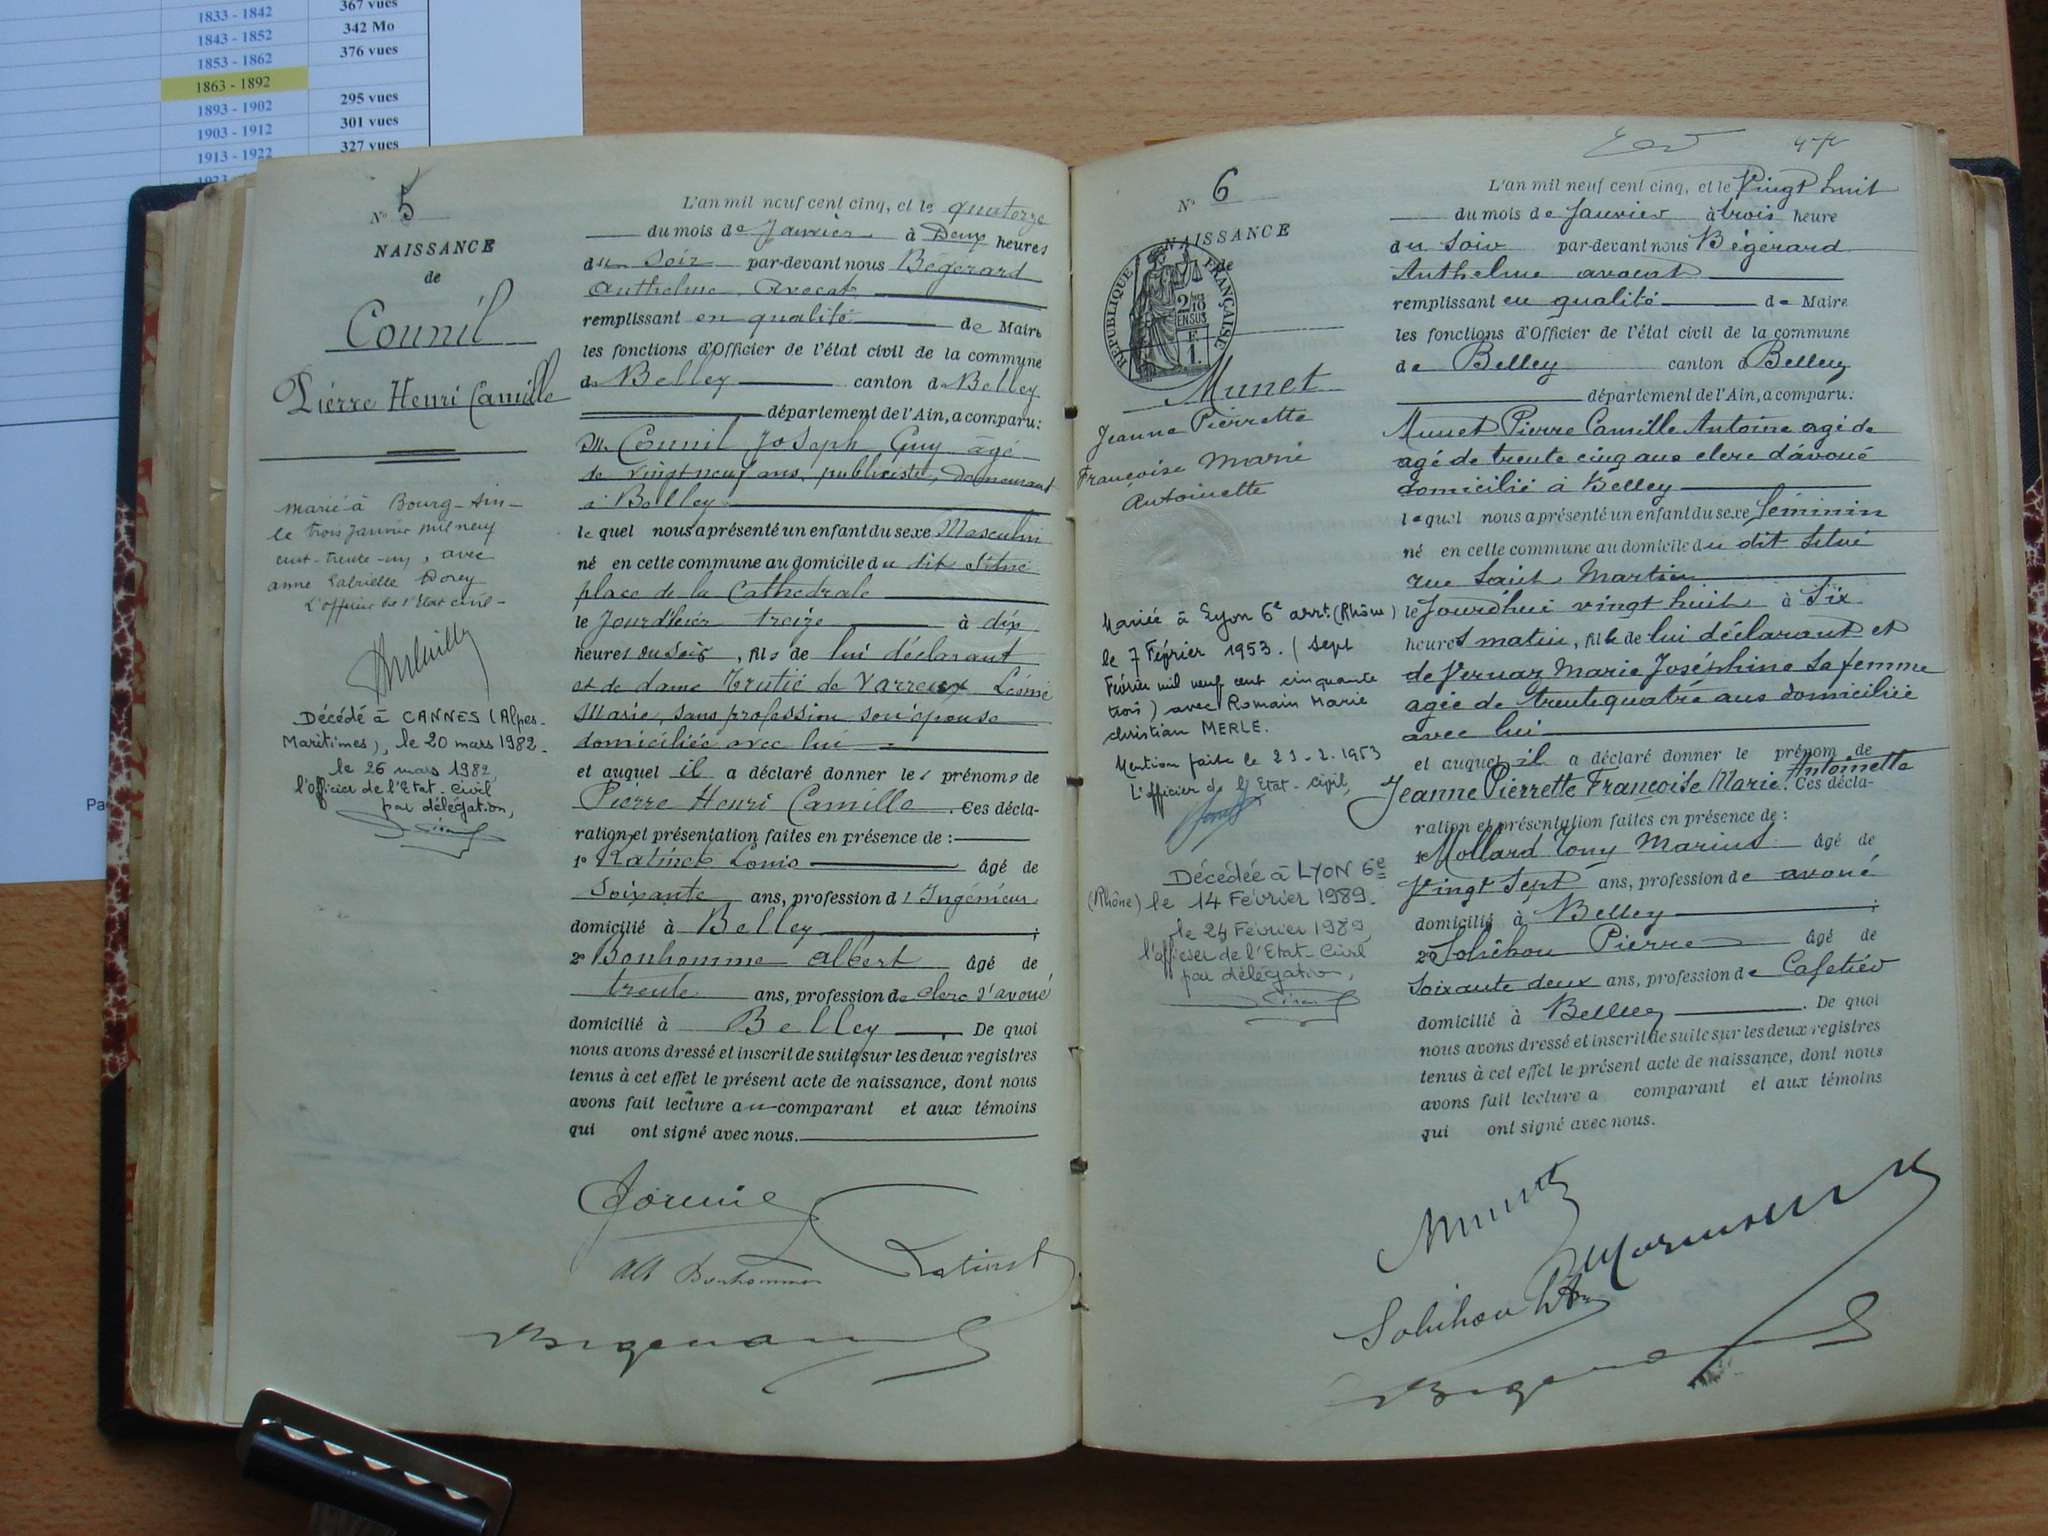 1833 - 1842
367 vues
1843 - 1852
342 Mo
1853 - 1862
376 vues
1863 - 1892
1893 - 1902
295 vues
1903 - 1912
301 vues
1913 - 1922
327 vues
Pa
No 5
NAISSANCE
de
Counil
Pierre Henri Camille
marié à Bourg-Ain
le trois Janvier mil neuf
cent-trente-un, avec
anne Gabrielle Dorey
L'officier de l'Etat civil-
Décédé à CANNES (Alpes-
Maritimes), le 20 mars 1982.
le 26 mars 1982
l'officier de l'Etat-Civil
par délégation,
L'an mil neuf cent cinq, et le quatorze
du mois de Janvier à Deux heures
du soir par-devant nous Bégérard
Anthelme, Avocat
remplissant en qualité de Maire
les fonctions d'Officier de l'état civil de la commune
de Belley canton de Belley
département de l'Ain, a comparu:
M. Counil Joseph Guy âgé
de vingt neuf ans, publiciste, demeurant
à Belley
le quel nous a présenté un enfant du sexe Masculin
né en cette commune au domicile du dit situé
place de la Cathédrale
le Jourd'hier treize à dix
heures du soir, fils de lui déclarant
et de dame de Varreux Léonie
Marie, sans profession son épouse
domiciliée avec lui
et auquel il a déclaré donner les prénoms de
Pierre Henri Camille. Ces décla-
ration et présentation faites en présence de:
1o Ratinet Louis âgé de
soixante ans, profession d'Ingénieur
domicilié à Belley;
2o Bonhomme Albert âgé de
trente ans, profession de clerc d'avoué
domicilié à Belley. De quoi
nous avons dressé et inscrit de suite sur les deux registres
tenus à cet effet le présent acte de naissance, dont nous
avons fait lecture au comparant et aux témoins
qui ont signé avec nous.
Counil
Alb Bonhomme Ratinet
Bégérard
No 6
NAISSANCE
de
RÉPUBLIQUE FRANÇAISE
2/10 EN SUS
F. 1.
Munet
Jeanne Pierrette
Françoise Marie
Antoinette
Mariée à Lyon 6e arrt. (Rhône)
le 7 Février 1953. (sept
Février mil neuf cent cinquante
trois) avec Romain Marie
christian MERLE.
Mention faite le 23-2-1953
L'officier de l'Etat-Civil,
Décédée à LYON 6e
(Rhône) le 14 Février 1989.
le 24 Février 1989
l'officier de l'Etat-Civil
par délégation,
L'an mil neuf cent cinq, et le Vingt huit
du mois de Janvier à trois heure
du soir par-devant nous Bégérard
Anthelme avocat
remplissant en qualité de Maire
les fonctions d'Officier de l'état civil de la commune
de Belley canton d Belley
département de l'Ain, a comparu:
Munet Pierre Camille Antoine agé de
agé de trente cinq ans clerc d'avoué
domicilié à Belley
lequel nous a présenté un enfant du sexe féminin
né en cette commune au domicile du dit situé
rue Saint Martin
le Jourd'hui vingt huit à Six
heures matin, fille de lui déclarant et
de Vernaz Marie Joséphine sa femme
agée de trente quatre ans domiciliée
avec lui
et auquel il a déclaré donner le prénom de
Jeanne Pierrette Françoise Marie Antoinette. Ces décla-
ration et présentation faites en présence de:
1o Mollard Tony Marius âgé de
Vingt sept ans, profession de avoué
domicilié à Belley;
2o Solichon Pierre âgé de
Soixante deux ans, profession de Cafetier
domicilié à Belley. De quoi
nous avons dressé et inscrit de suite sur les deux registres
tenus à cet effet le présent acte de naissance, dont nous
avons fait lecture a comparant et aux témoins
qui ont signé avec nous.
Munet
Bégérard